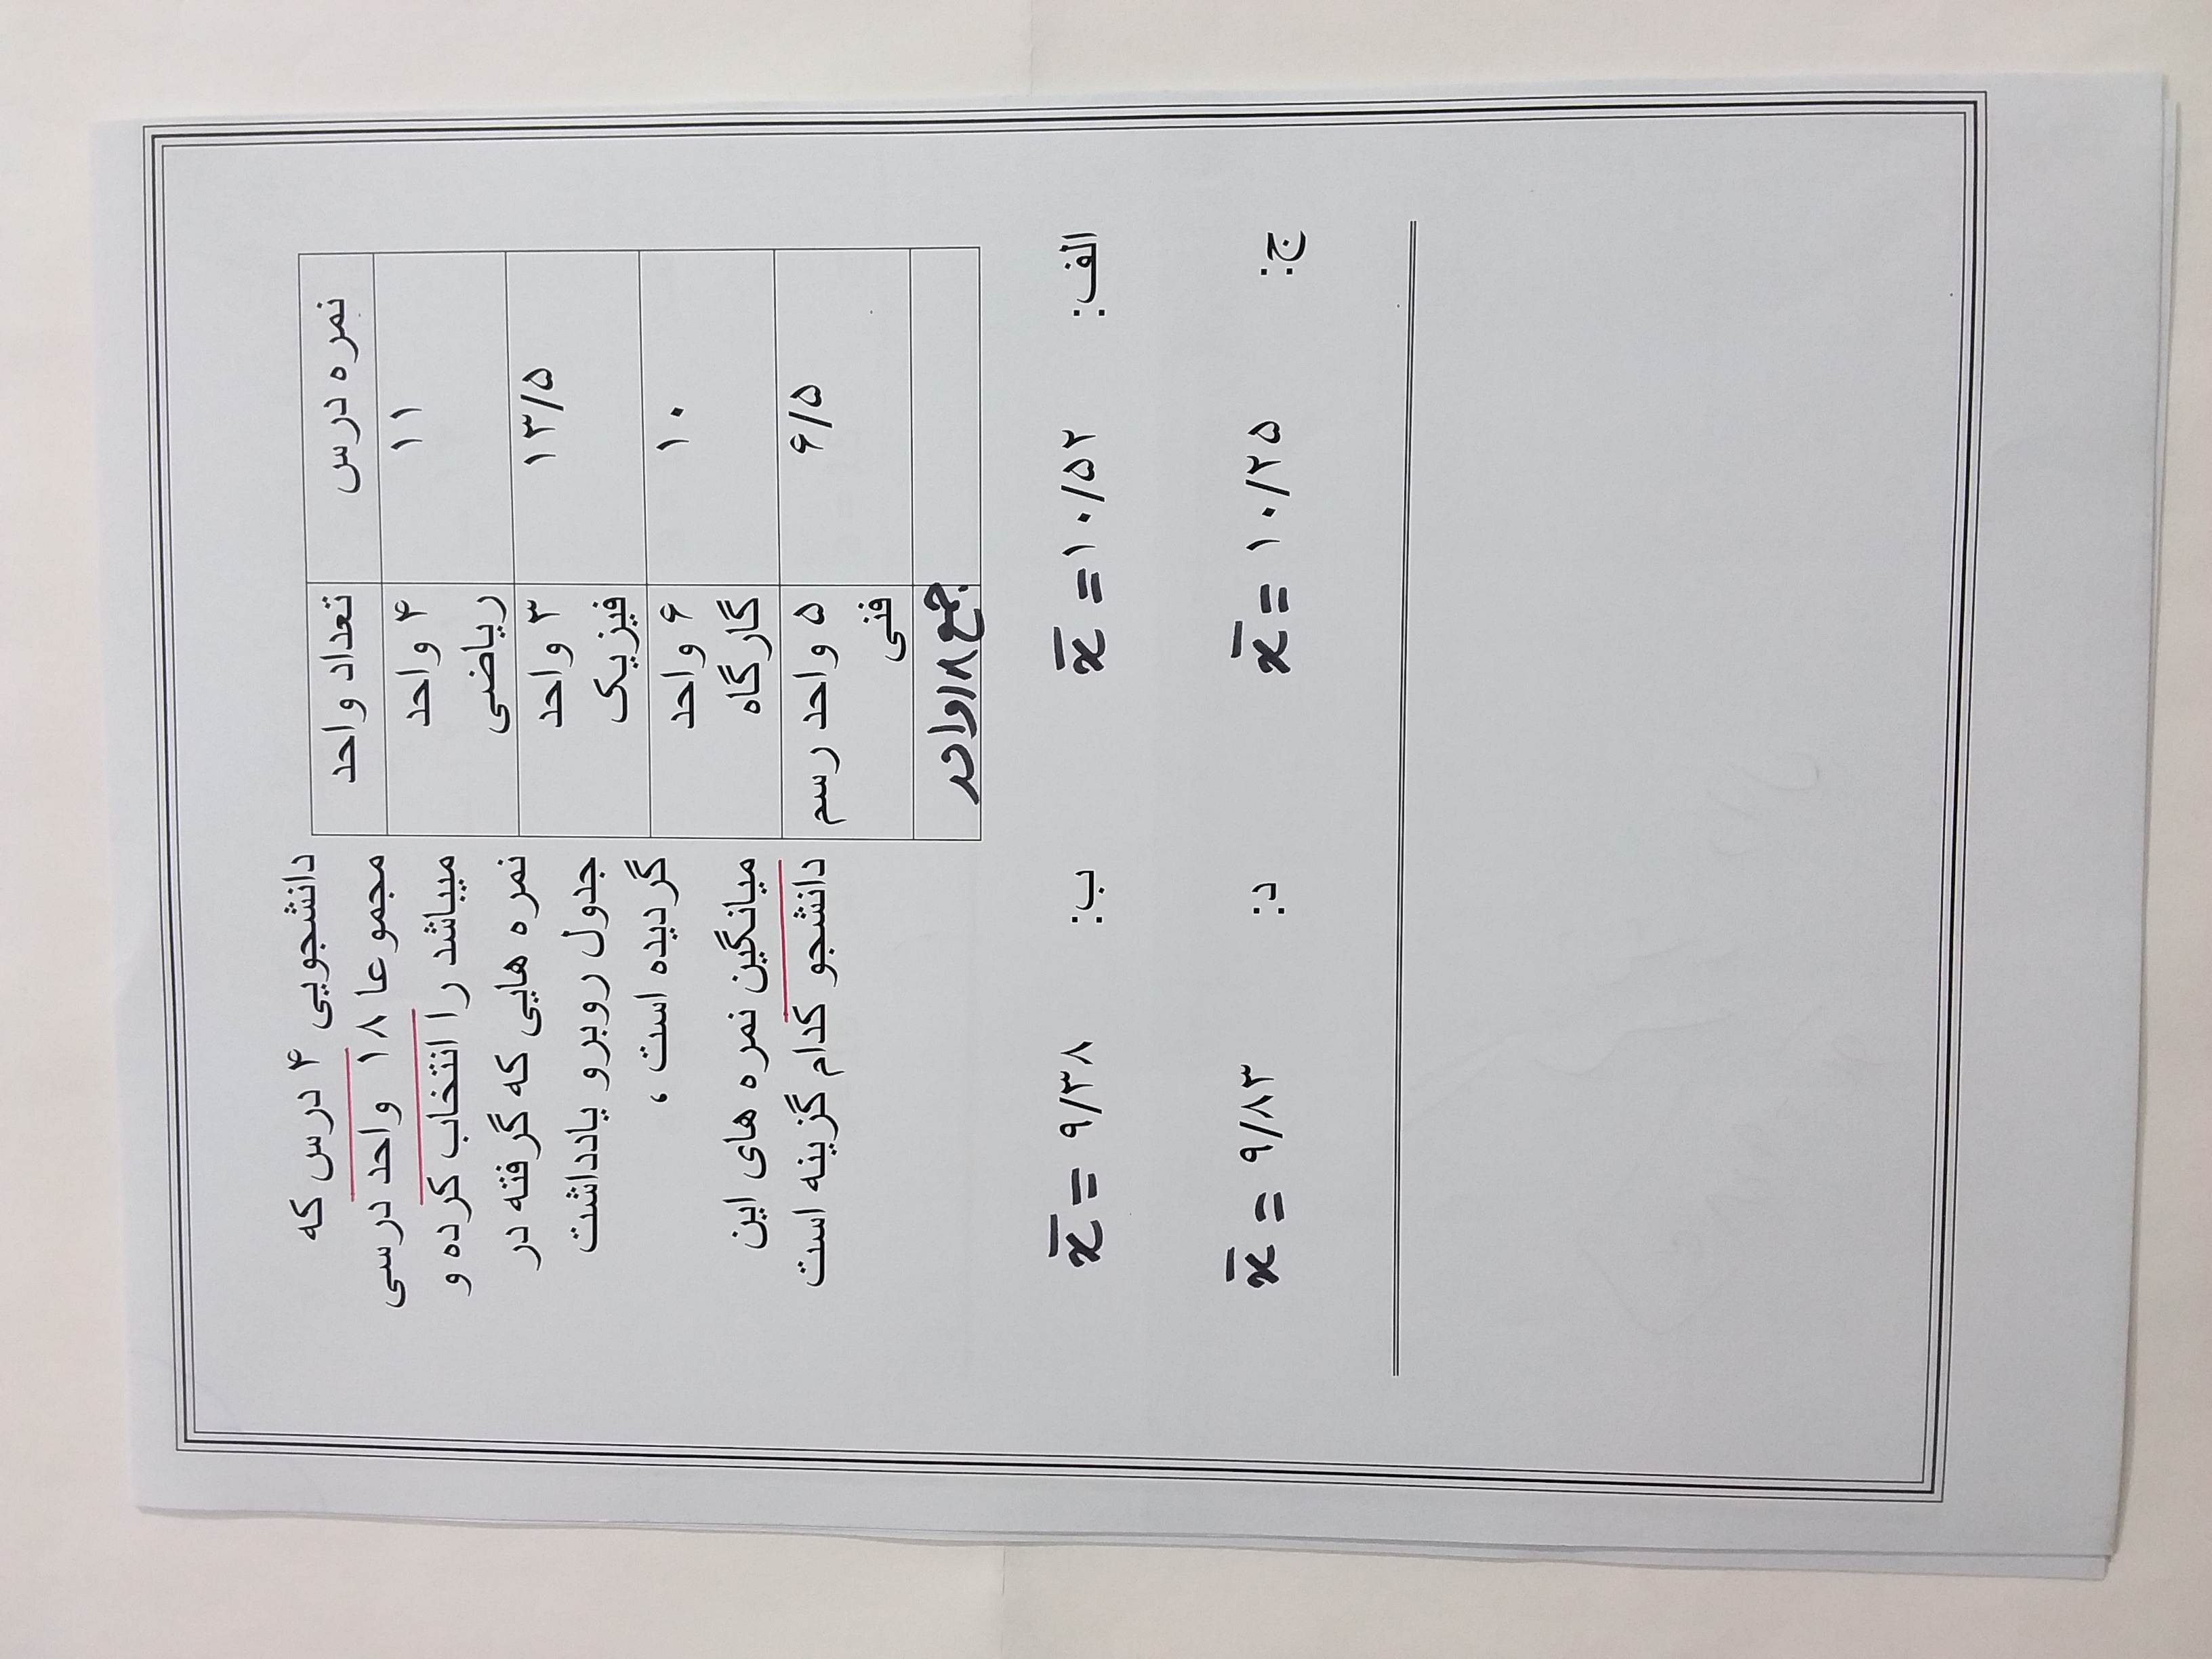 نمره درس	تعداد واحد
۱۱	۴ واحد
ریاضی
۱۳/۵	۳ واحد
فیزیک
۱۰	۶ واحد
گارگاه
۶/۵	۵ واحد رسم
فنی
جمع ۱۸ واحد
دانشجویی ۴ درس که
مجموعا ۱۸ واحد درسی
میباشد را انتخاب کرده و
نمره هایی که گرفته در
جدول روبرو یادداشت
گردیده است ،
میانگین نمره های این
دانشجو کدام گزینه است
الف: x̄ = ۱۰/۵۲	ب: x̄ = ۹/۳۸
ج: x̄ = ۱۰/۲۵	د: x̄ = ۹/۸۳